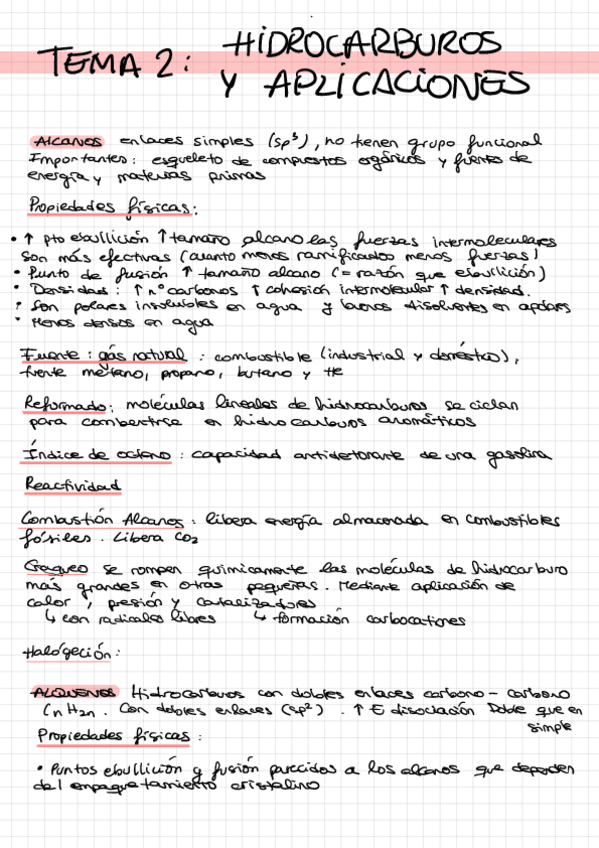 TEMA 2: HIDROCARBUROS
Y APLICACIONES
Alcanos enlaces simples (sp³), no tienen grupo funcional
Importantes: esqueleto de compuestos orgánicos y fuente de
energía y materias primas
Propiedades físicas:
• ↑ pto ebullición ↑ tamaño alcano las fuerzas intermoleculares
son más efectivas (cuanto menos ramificados menos fuerzas)
• Punto de fusión ↑ tamaño alcano (= razón que ebullición)
• Densidad: ↑ nº carbonos ↑ cohesión intermolecular ↑ densidad.
• Son polares insolubles en agua y buenos disolventes en apolares
• Menos densos en agua
Fuente: gas natural: combustible (industrial y doméstico),
fuente metano, propano, butano y He
Reformado: moléculas lineales de hidrocarburos se ciclan
para convertirse en hidrocarburos aromáticos
Índice de octano: capacidad antidetonante de una gasolina
Reactividad
Combustión Alcanos: libera energía almacenada en combustibles
fósiles. Libera CO2
Craqueo se rompen químicamente las moléculas de hidrocarburo
más grandes en otras pequeñas. Mediante aplicación de
calor, presión y catalizadores
↳ con radicales libres ↳ formación carbocationes
Halogeción:
ALQUENOS Hidrocarburos con dobles enlaces carbono - carbono
CnH2n. Con dobles enlaces (sp²). ↑ E disociación Doble que en
simple
Propiedades físicas:
• Puntos ebullición y fusión parecidos a los alcanos que dependen
del empaquetamiento cristalino